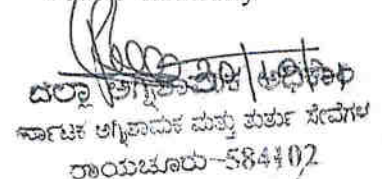 ಜಿಲ್ಲಾ ಅಗ್ನಿಶಾಮಕ ಅಧಿಕಾರಿ
ಕರ್ನಾಟಕ ಅಗ್ನಿಶಾಮಕ ಮತ್ತು ತುರ್ತು ಸೇವೆಗಳ
ರಾಯಚೂರು-584102